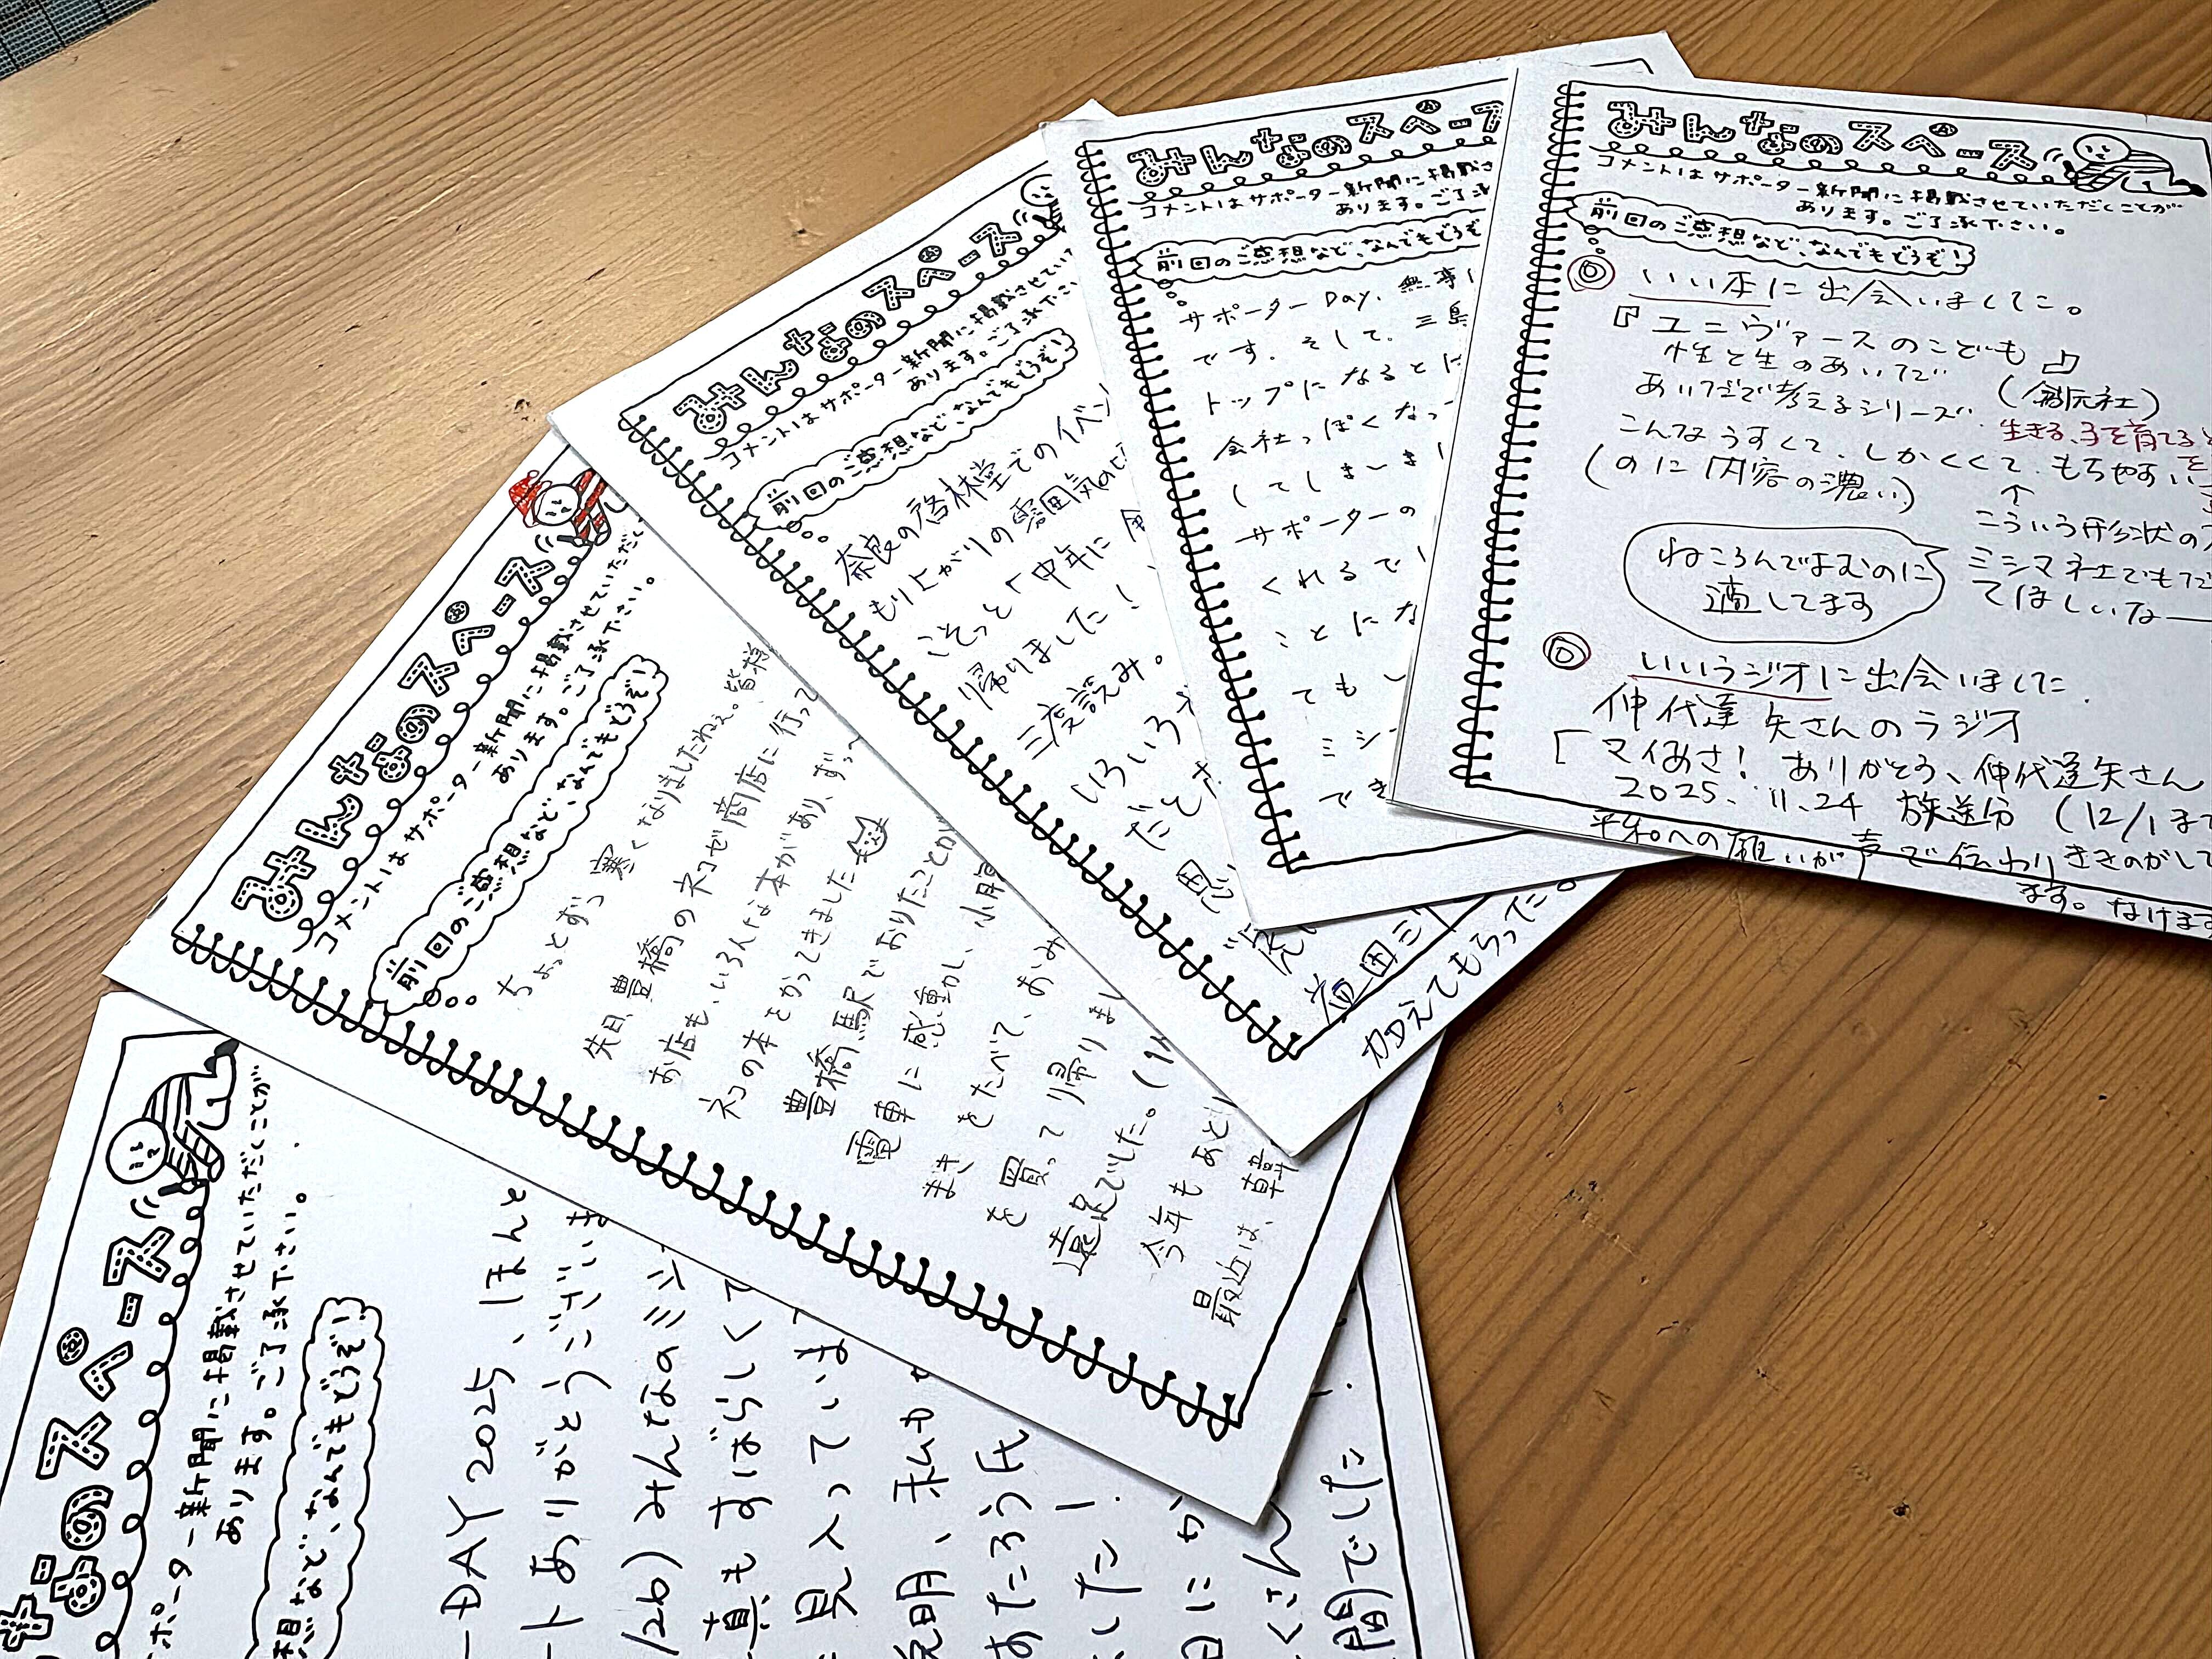 みんなのスペース
コメントはサポーター新聞に掲載させていただくことが
あります。ご了承下さい。
前回のご感想など、なんでもどうぞ!
いい本に出会いました。
『ユニヴァースのこども』
性と生のあいだ
あいだで考えるシリーズ
(創元社)
生きる、子を育てる
こんなうすくて、しかくくて、もちやすい
(のに内容の濃い)
↑
こういう形状の
ねころんでよむのに
適してます
ミシマ社でも
てほしいなー
いいラジオに出会いました
仲代達矢さんのラジオ
「マイあさ! ありがとう、仲代達矢さん
2025.11.24 放送分 (12/1まで
平和への願いが声で伝わりききのがして
ます。なけます
みんなのスペース
コメントはサポーター新聞に掲載さ
あります。ご了承
前回のご感想など、なんでもどうぞ
サポーターDay、無事
です。そして、三島
トップになるとに
会社っぽくなっ
してしまいま
サポーターの
くれるで
ことにな
ても
ミシ
でき
みんなのスペース
コメントはサポーター新聞に掲載させてい
あります。ご了承下さい
前回のご感想など、なんでもどうぞ!
奈良の啓林堂でのイベン
もり上がりの雰囲気の
こそっと「中年に
帰りました!
三度読み。
いろいろ
だと
思い
益田ミリ
加えてもらった。
みんなのスペース
コメントはサポーター新聞に掲載させていただく
あります。ご了承下さい。
前回のご感想など、なんでもどうぞ!
ちょっとずつ寒くなりましたねぇ。皆様
先日、豊橋のネコゼ商店に行って
お店も、いろんな本があり、ずっ
ネコの本をかってきました
豊橋駅でおりたことが
電車に感動し、小肩
まきをたべて、おみ
を買って帰りまし
遠足でした。
今年もあと
最近は、韓
なのスペース
ポーター新聞に掲載させていただくことが
あります。ご了承下さい。
想など、なんでもどうぞ!
ーDAY2025、ほんと
ートありがとうござい
/26)みんなのミシ
真もすばらしくて
見入っていま
説明、私か
あたろう氏
した!
日にか
くさん
間)でした